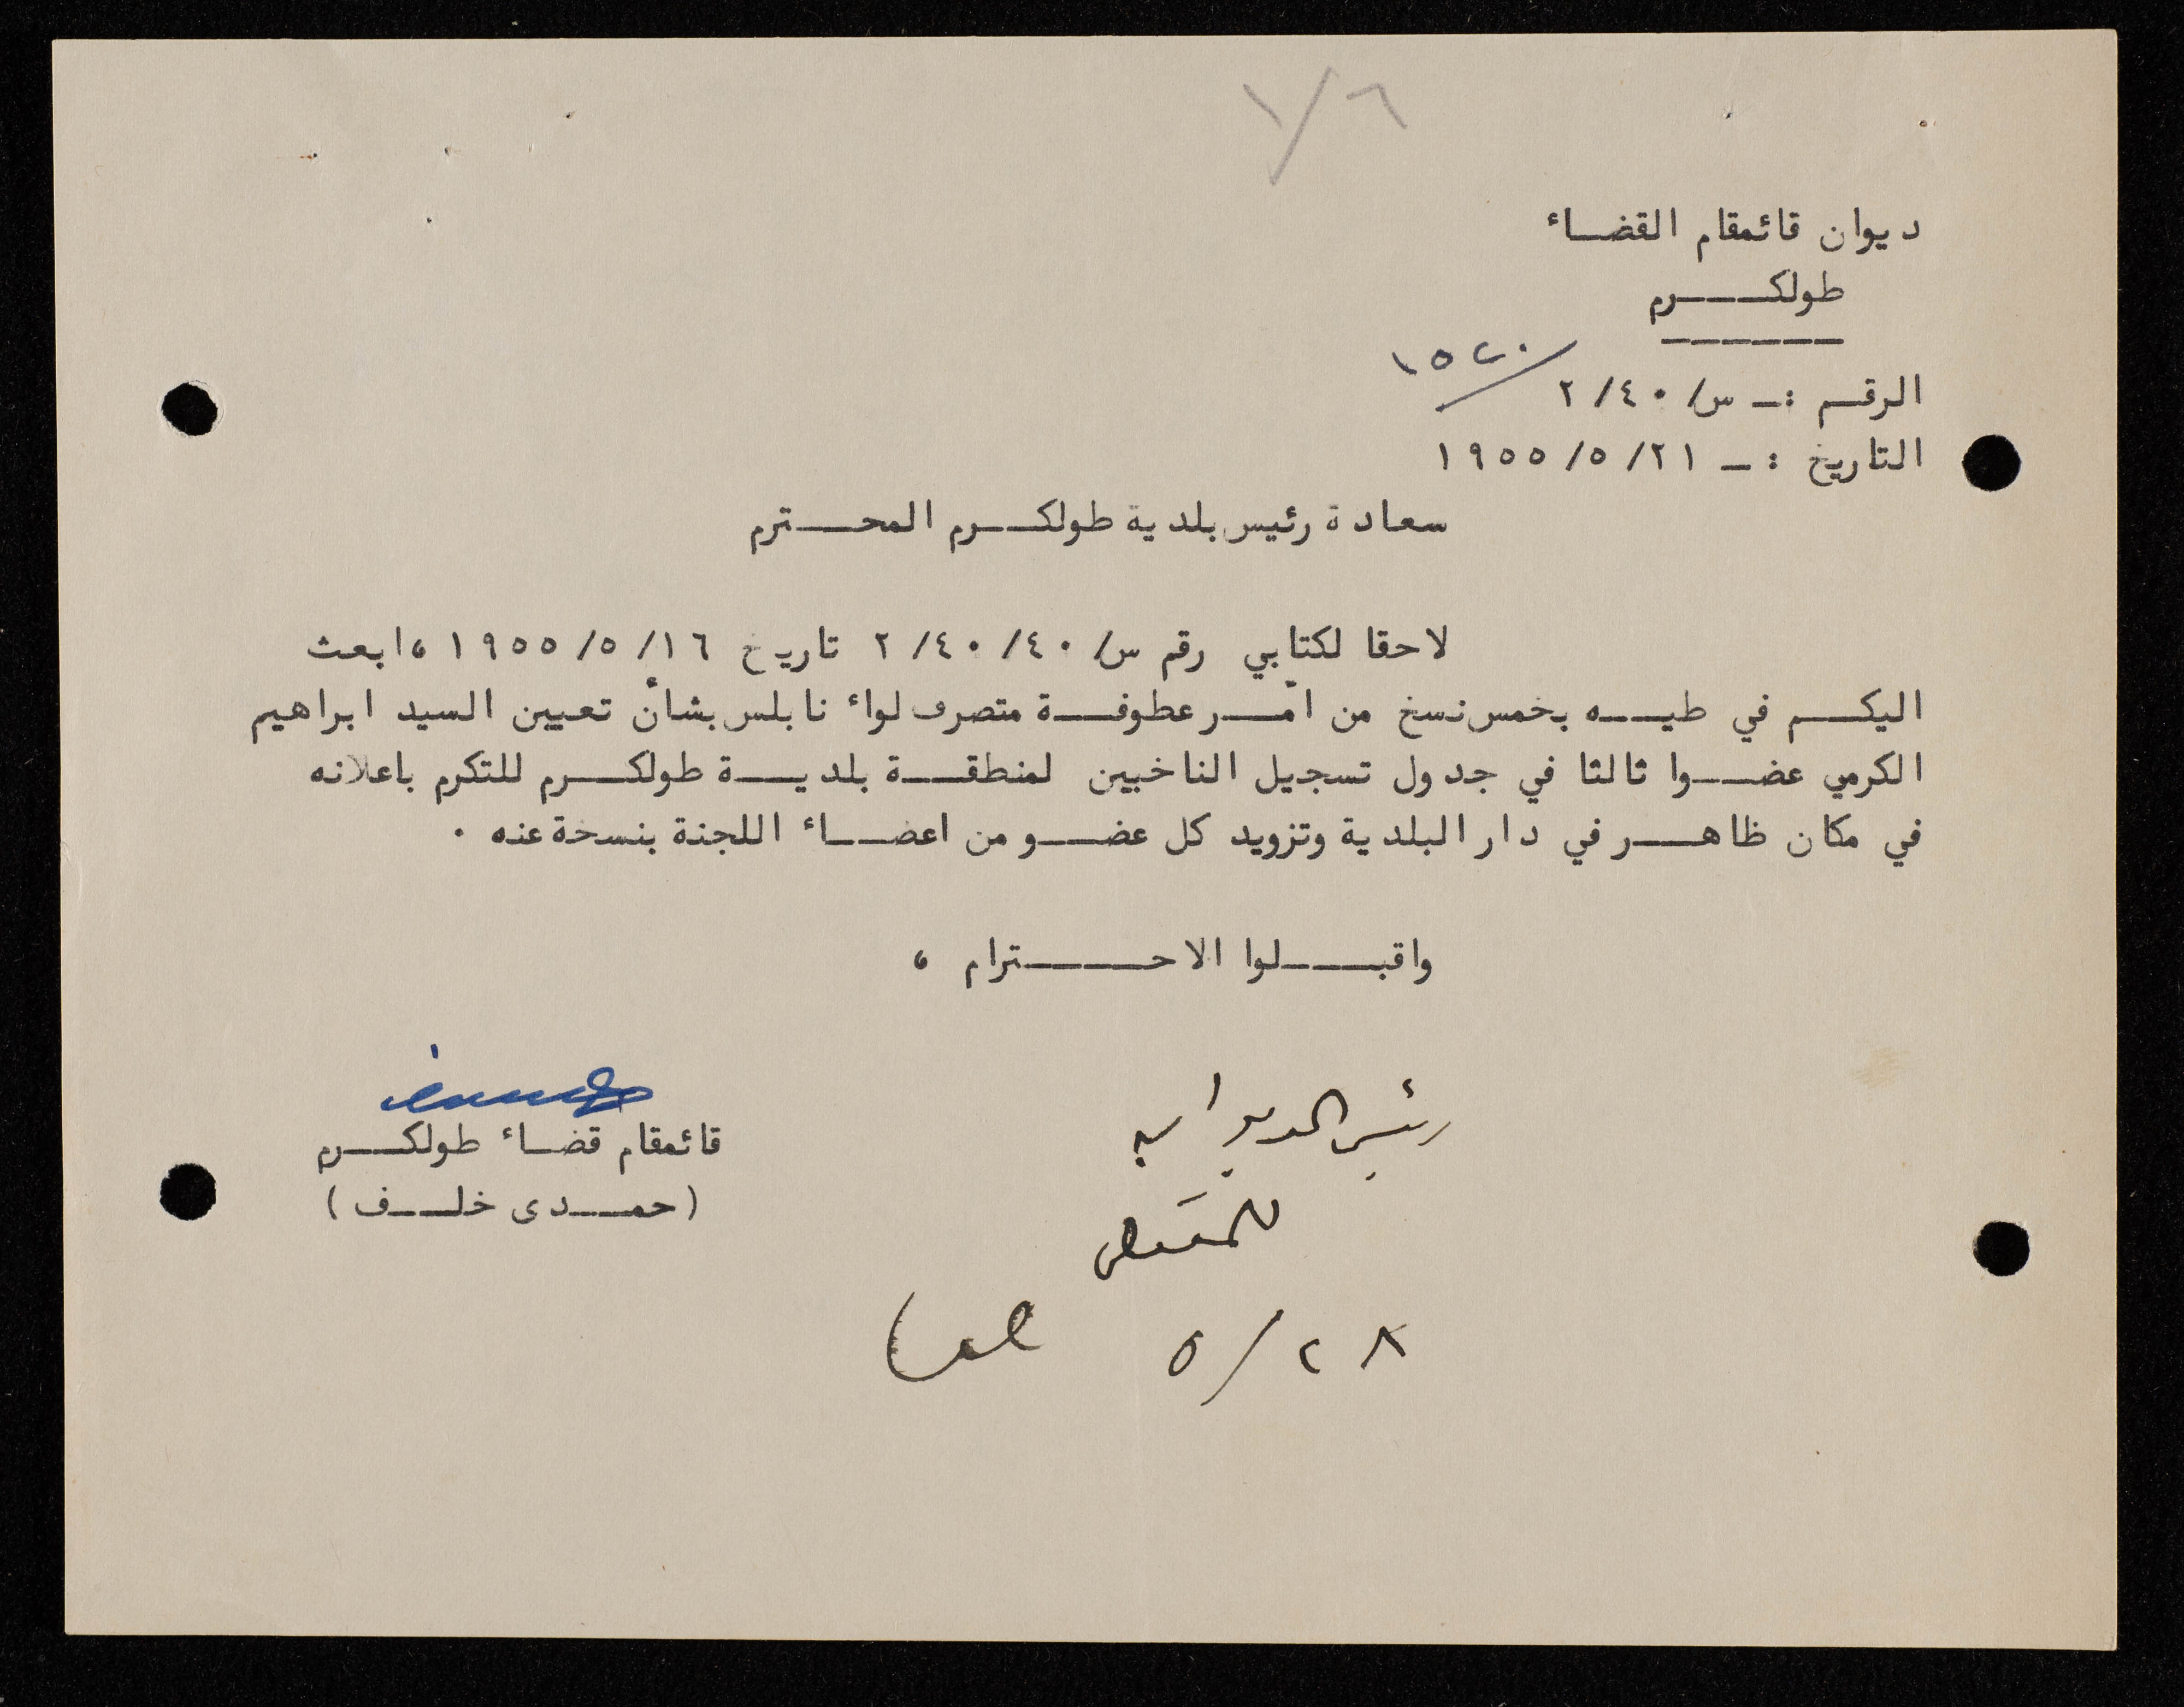 ١/٦
ديوان قائمقام القضاء
طولكرم
١٥٢٠
الرقم :ـ س/٢/٤٠
التاريخ :ـ ١٩٥٥/٥/٢١
سعادة رئيس بلدية طولكرم المحترم
لاحقا لكتابي رقم س/٢/٤٠/٤٠ تاريخ ١٩٥٥/٥/١٦ ، ابعث
اليكم في طيه بخمس نسخ من أمر عطوفة متصرف لواء نابلس بشأن تعيين السيد ابراهيم
الكرمي عضوا ثالثا في جدول تسجيل الناخبين لمنطقة بلدية طولكرم للتكرم باعلانه
في مكان ظاهر في دار البلدية وتزويد كل عضو من اعضاء اللجنة بنسخة عنه .
واقبلوا الاحترام ،
قائمقام قضاء طولكرم
(حمدى خلف)
رئيس الديوان
٥/٢٨